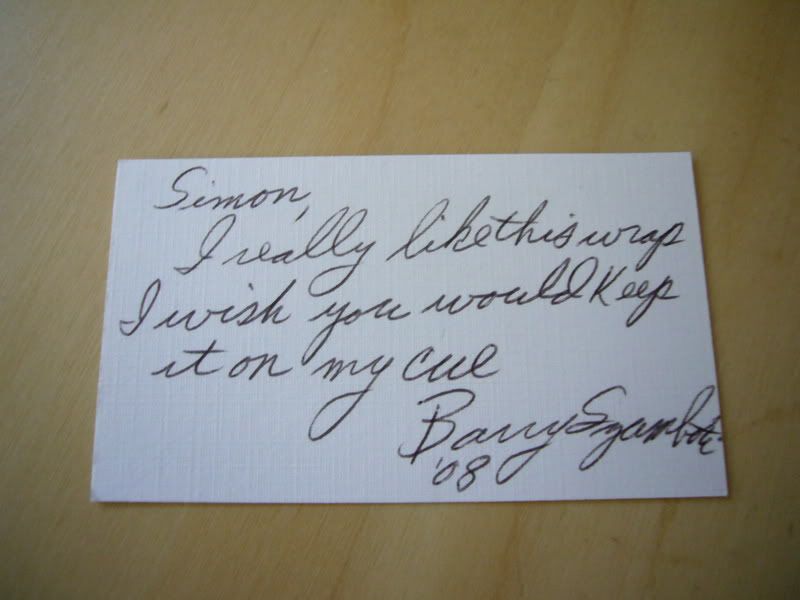 Simon,
I really like this wrap
I wish you would Keep
it on my cue
Barry Szamboti
'08